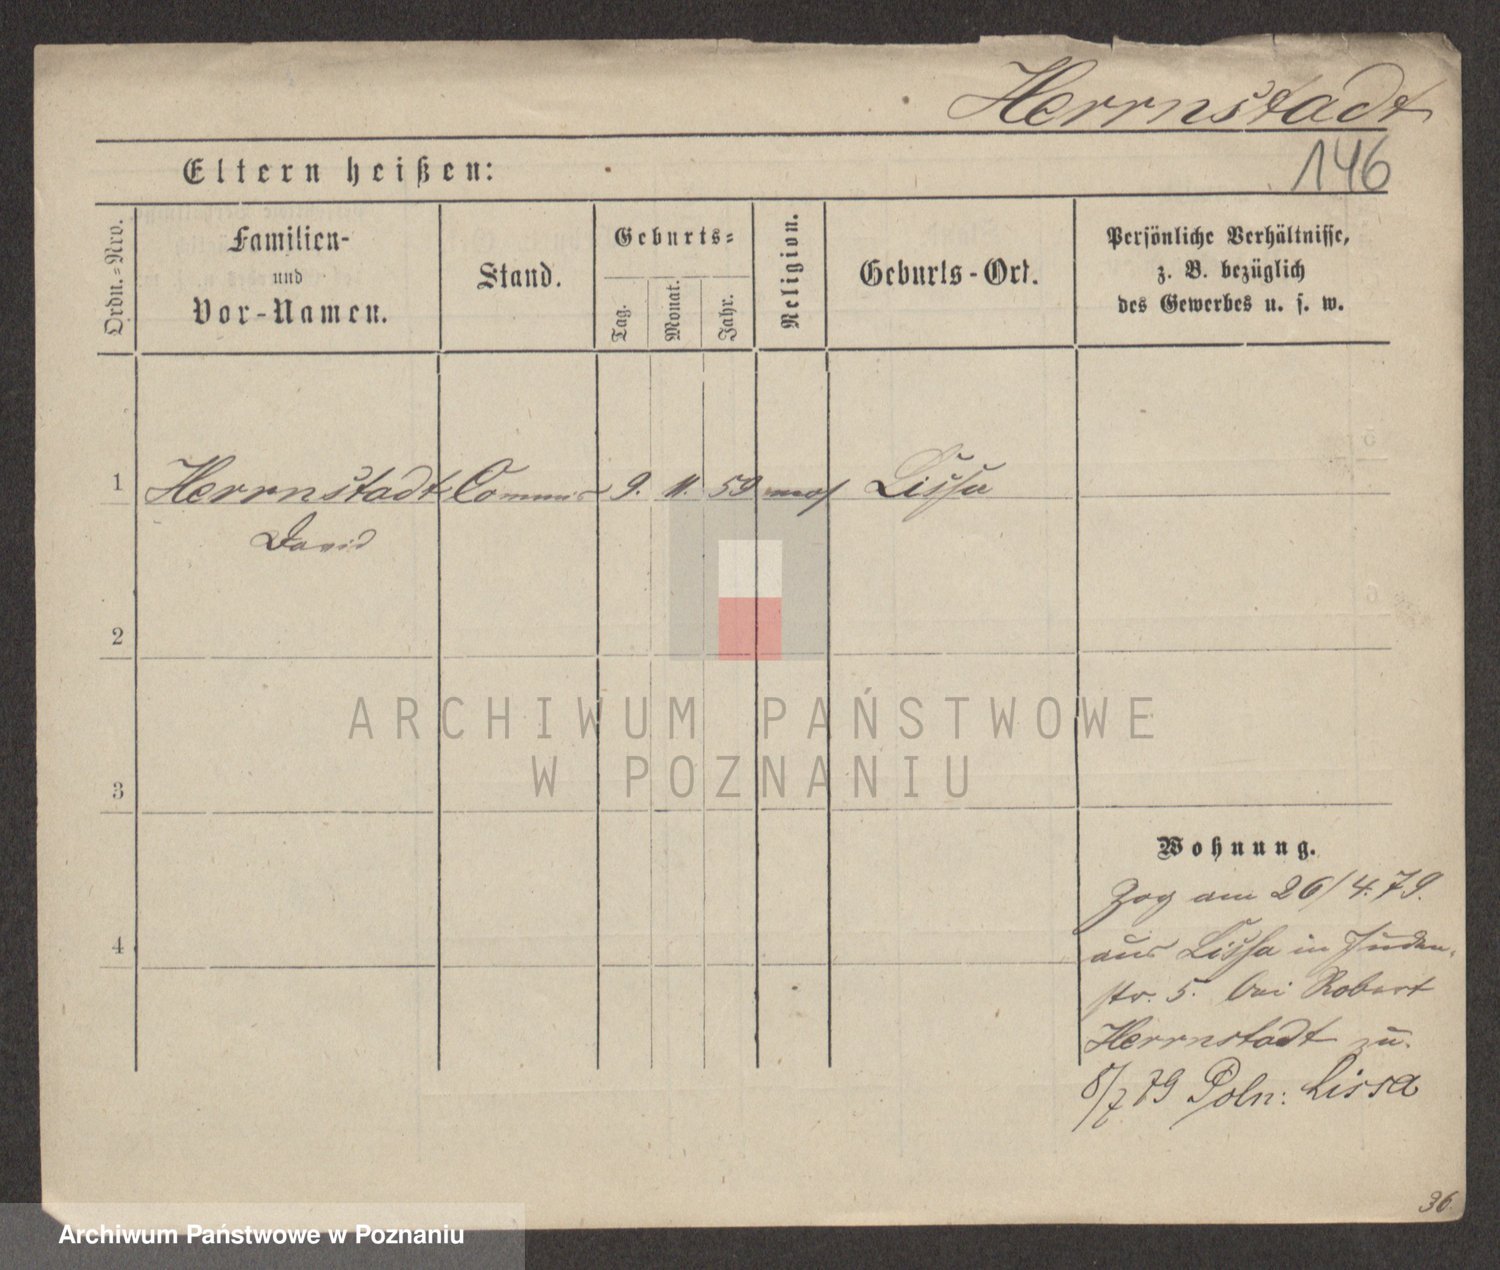 Herrnstadt
146
Eltern heißen:
Ordn.-Nro.
Familien-
und
Vor-Namen.
Stand.
Geburts-
Tag.
Monat.
Jahr.
Religion.
Geburts-Ort.
Persönliche Verhältnisse,
z. B. bezüglich
des Gewerbes u. s. w.
1 Herrnstadt Commis 9. 11. 59 mos Lissa
David
2
3
4
ARCHIWUM PAŃSTWOWE
W POZNANIU
Wohnung.
Zog am 26/4.79.
aus Lissa in Juden-
str. 5. bei Robert
Herrnstadt zu.
8/7 79 Poln: Lissa
36
Archiwum Państwowe w Poznaniu